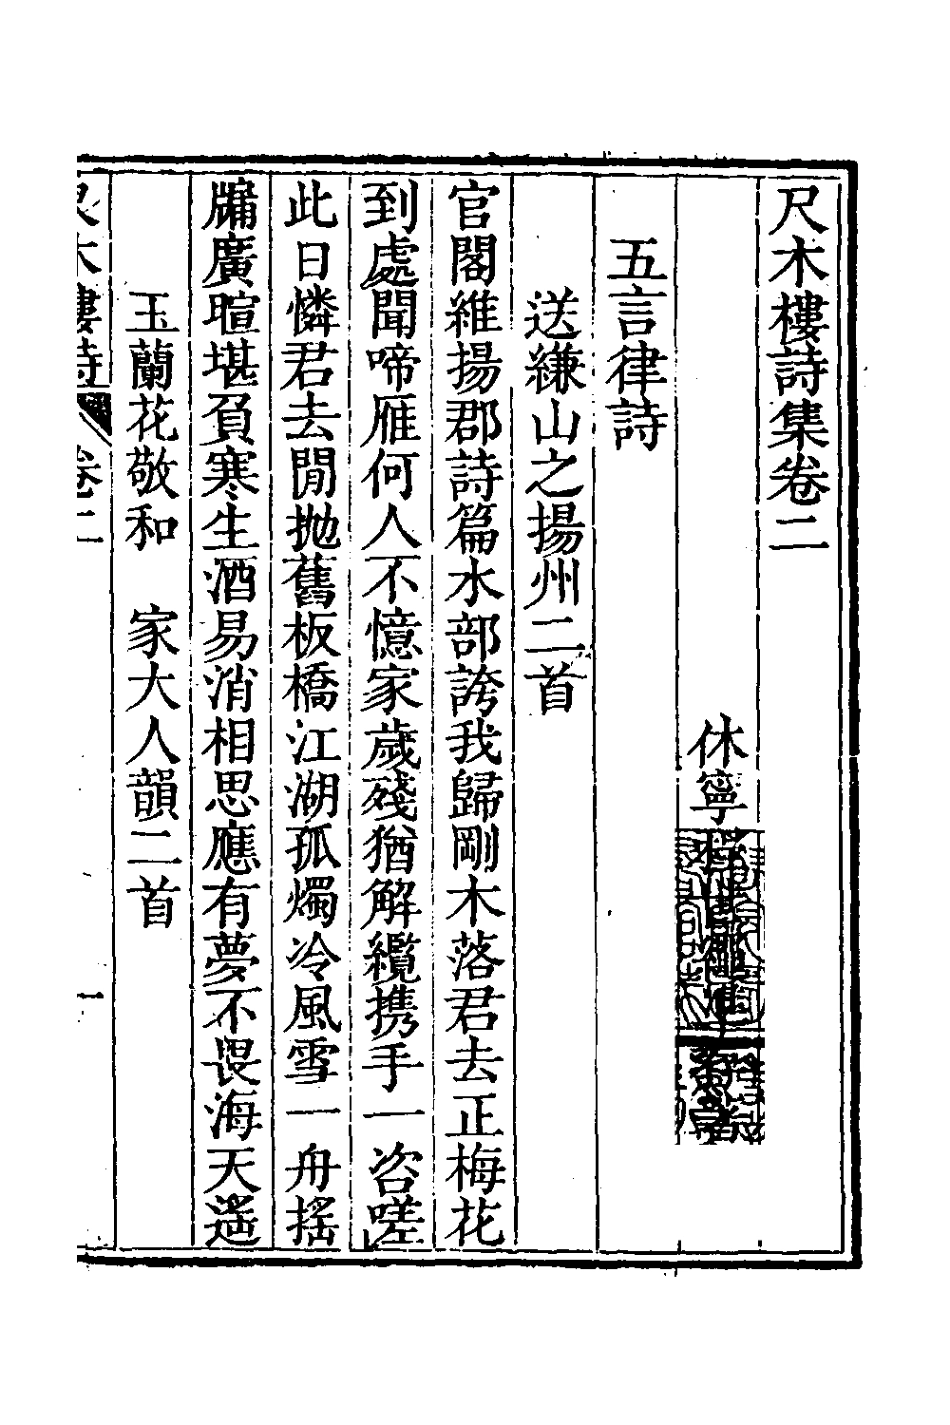 尺木樓詩集卷二
休寧
五言律詩
送縑山之揚州二首
官閣維揚郡詩篇水部誇我歸剛木落君去正梅花
到處聞啼雁何人不憶家歲殘猶解纜携手一咨嗟
此日憐君去閒抛舊板橋江湖孤燭冷風雪一舟搖
牖廣暄堪負寒生酒易消相思應有夢不畏海天遙
玉蘭花敬和　家大人韻二首
尺木樓詩　卷二　一